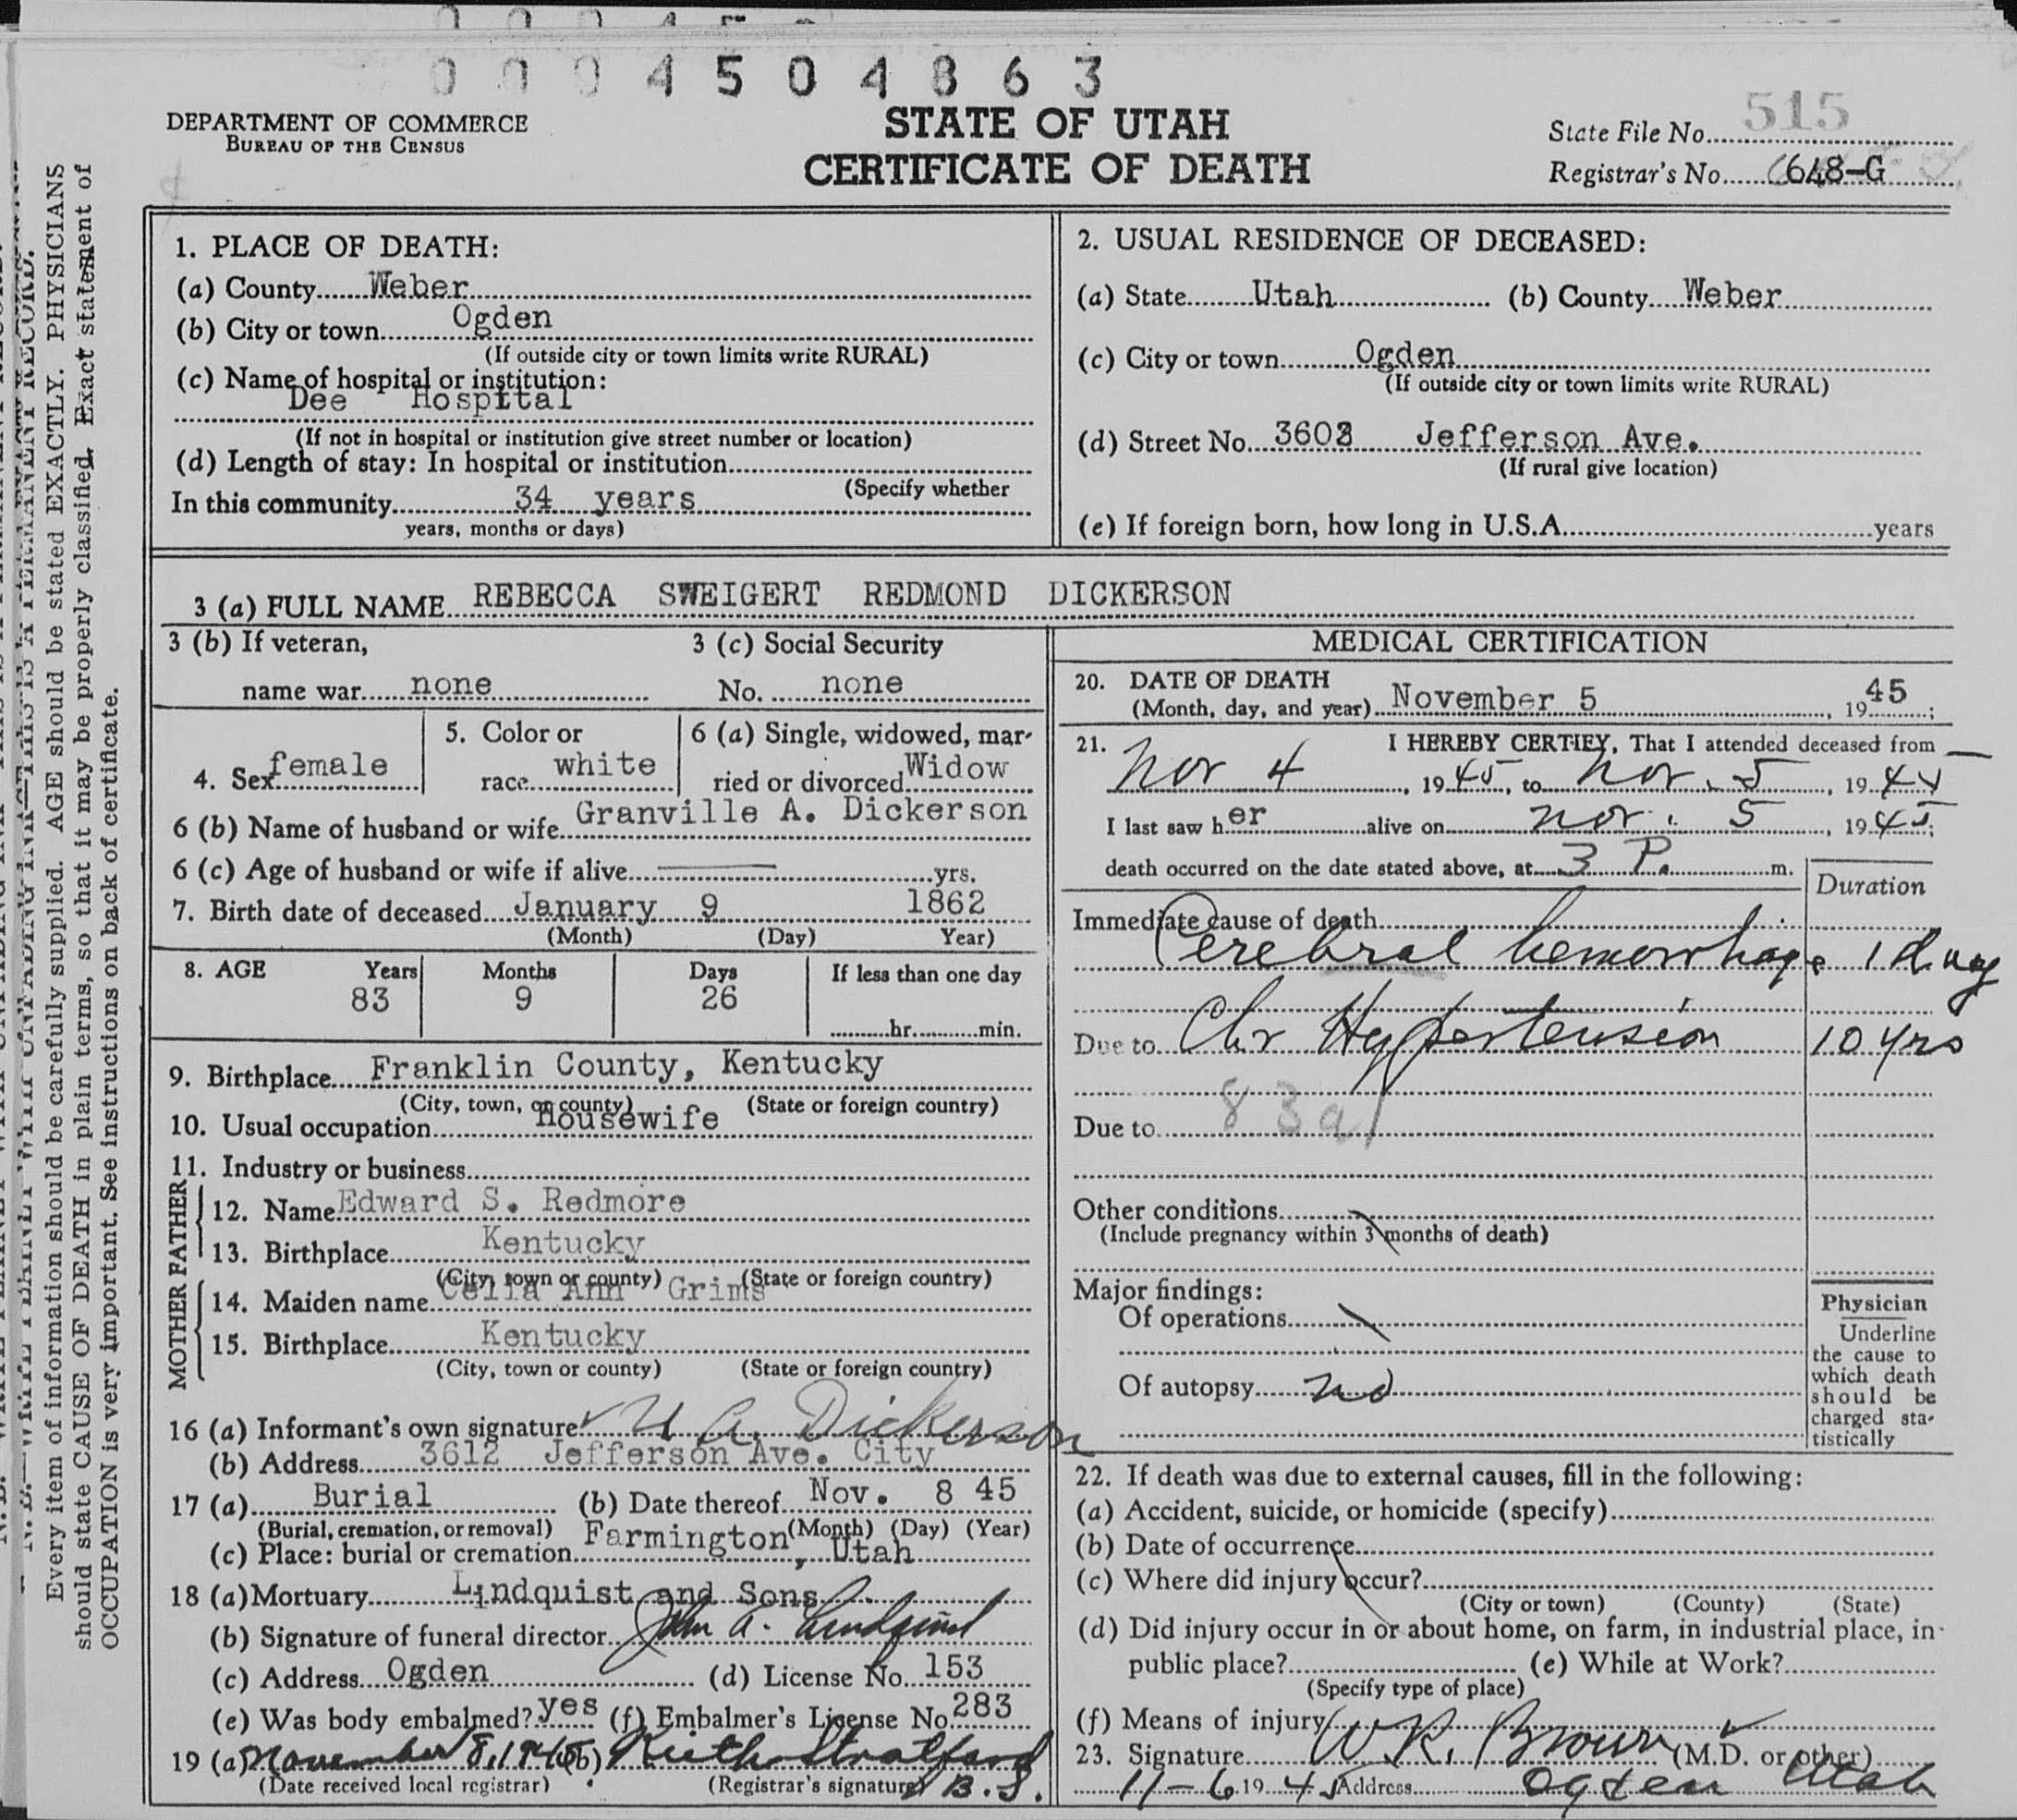 0 0 0 4 5 0 4 8 6 3
DEPARTMENT OF COMMERCE
BUREAU OF THE CENSUS
STATE OF UTAH
CERTIFICATE OF DEATH
State File No. 515
Registrar's No. 648-G
Every item of information should be carefully supplied. AGE should be stated EXACTLY. PHYSICIANS
should state CAUSE OF DEATH in plain terms, so that it may be properly classified. Exact statement of
OCCUPATION is very important. See instructions on back of certificate.
1. PLACE OF DEATH:
(a) County Weber
(b) City or town Ogden
(If outside city or town limits write RURAL)
(c) Name of hospital or institution:
Dee Hospital
(If not in hospital or institution give street number or location)
(d) Length of stay: In hospital or institution
(Specify whether
In this community 34 years
years, months or days)
2. USUAL RESIDENCE OF DECEASED:
(a) State Utah (b) County Weber
(c) City or town Ogden
(If outside city or town limits write RURAL)
(d) Street No. Jefferson Ave.
(If rural give location)
(e) If foreign born, how long in U.S.A. years
3 (a) FULL NAME REBECCA SWEIGERT REDMOND DICKERSON
3 (b) If veteran,
name war none
3 (c) Social Security
No. none
4. Sex female
5. Color or
race white
6 (a) Single, widowed, mar-
ried or divorced Widow
6 (b) Name of husband or wife Granville A. Dickerson
6 (c) Age of husband or wife if alive yrs.
7. Birth date of deceased January 9 1862
(Month) (Day) Year)
8. AGE Years Months Days If less than one day
83 9 26
hr. min.
9. Birthplace Franklin County, Kentucky
(City, town, or county) (State or foreign country)
10. Usual occupation Housewife
11. Industry or business
FATHER
12. Name Edward S. Redmore
13. Birthplace Kentucky
(City, town or county) (State or foreign country)
MOTHER
14. Maiden name Celia Ann Grims
15. Birthplace Kentucky
(City, town or county) (State or foreign country)
16 (a) Informant's own signature A. Dickerson
(b) Address 3612 Jefferson Ave. City
17 (a) Burial (b) Date thereof Nov. 8 45
(Burial, cremation, or removal) (Month) (Day) (Year)
(c) Place: burial or cremation Farmington, Utah
18 (a) Mortuary Lindquist and Sons
(b) Signature of funeral director John A. Lindquist
(c) Address Ogden (d) License No. 153
(e) Was body embalmed? yes (f) Embalmer's License No. 283
19 (a) November 8, 1945 (b) Keith Stratford
(Date received local registrar) (Registrar's signature) B.S.
MEDICAL CERTIFICATION
20. DATE OF DEATH
(Month, day, and year) November 5, 1945;
21. I HEREBY CERTIFY, That I attended deceased from
Nov 4, 1945, to Nov. 5, 1945
I last saw her alive on Nov. 5, 1945;
death occurred on the date stated above, at 3 P. m.
Duration
Immediate cause of death
Cerebral hemorrhage 1 day
Due to Chr Hypertension 10 yrs
Due to 83a
Other conditions
(Include pregnancy within 3 months of death)
Major findings:
Of operations
Of autopsy no
Physician
Underline
the cause to
which death
should be
charged sta-
tistically
22. If death was due to external causes, fill in the following:
(a) Accident, suicide, or homicide (specify)
(b) Date of occurrence
(c) Where did injury occur?
(City or town) (County) (State)
(d) Did injury occur in or about home, on farm, in industrial place, in
public place? (e) While at Work?
(Specify type of place)
(f) Means of injury
23. Signature W. R. Brown (M.D. or other)
11-6 1945 Address Ogden Utah